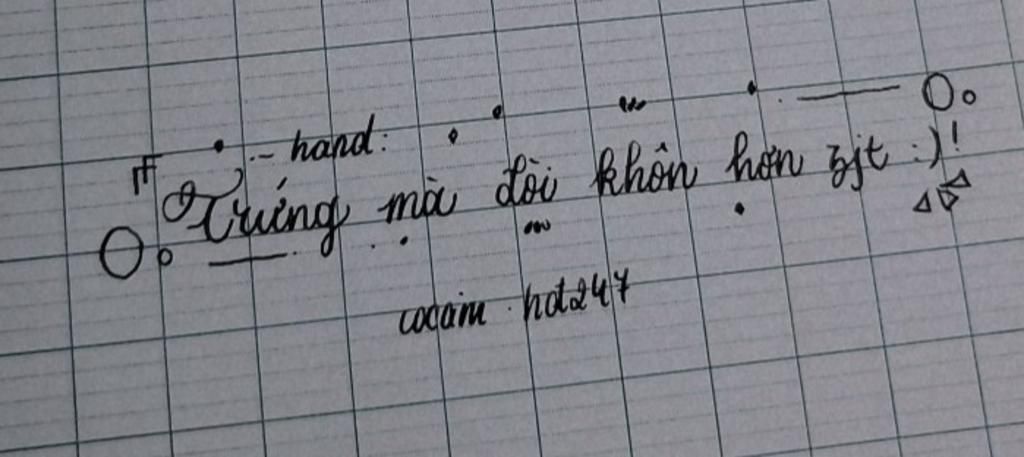 hand:
Trứng mà đòi khôn hơn zjt :)!
cocain hdt247